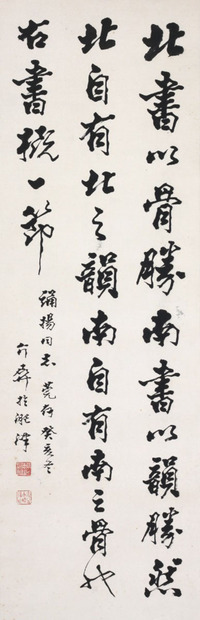 北書以骨勝南書以韻勝然
北自有北之韻南自有南之骨也
右書概一節
彌揚同志 莞存 癸亥冬
於